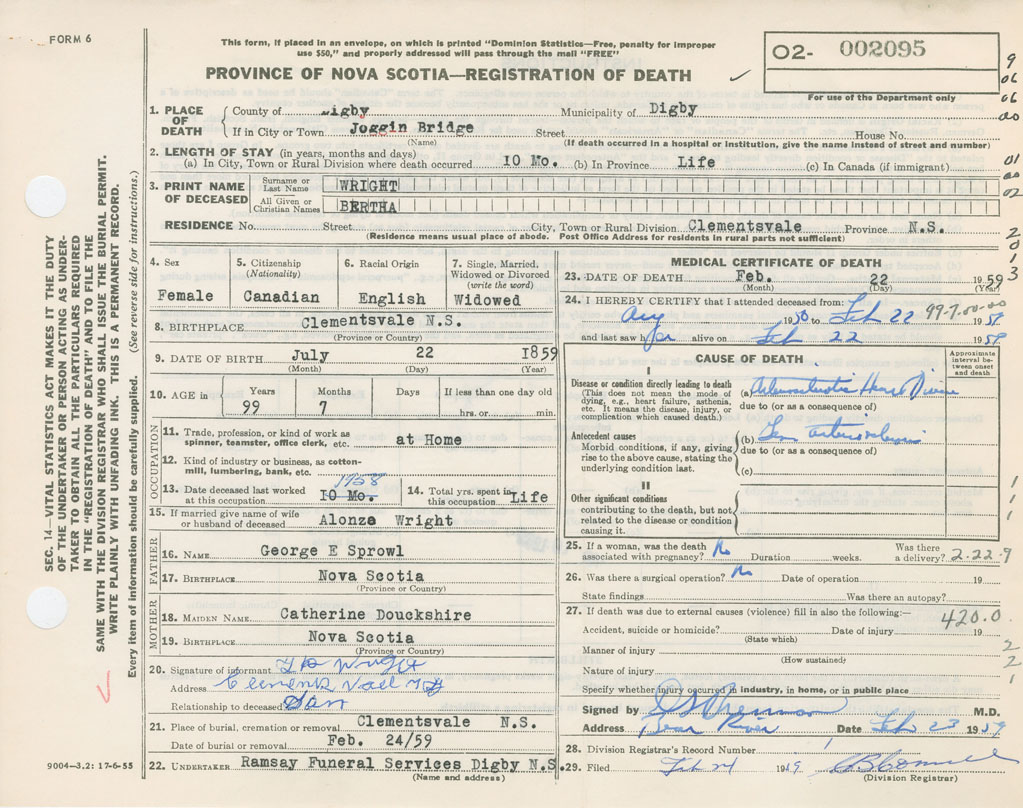 FORM 6
This form, if placed in an envelope, on which is printed "Dominion Statistics—Free, penalty for improper
use $50," and properly addressed will pass through the mail "FREE"
PROVINCE OF NOVA SCOTIA—REGISTRATION OF DEATH
02- 002095
For use of the Department only
9
06
06
00
01
00
02
2
0
1
3
SEC. 14—VITAL STATISTICS ACT MAKES IT THE DUTY
OF THE UNDERTAKER OR PERSON ACTING AS UNDER-
TAKER TO OBTAIN ALL THE PARTICULARS REQUIRED
IN THE "REGISTRATION OF DEATH" AND TO FILE THE
SAME WITH THE DIVISION REGISTRAR WHO SHALL ISSUE THE BURIAL PERMIT.
WRITE PLAINLY WITH UNFADING INK. THIS IS A PERMANENT RECORD.
Every item of information should be carefully supplied. (See reverse side for instructions.)
1. PLACE OF DEATH
County of Digby Municipality of Digby
If in City or Town Joggin Bridge Street House No.
(Name) (If death occurred in a hospital or institution, give the name instead of street and number)
2. LENGTH OF STAY (in years, months and days)
(a) In City, Town or Rural Division where death occurred 10 Mo. (b) In Province Life (c) In Canada (if immigrant)
3. PRINT NAME OF DECEASED
Surname or Last Name WRIGHT
All Given or Christian Names BERTHA
RESIDENCE No. Street City, Town or Rural Division Clementsvale Province N.S.
(Residence means usual place of abode. Post Office Address for residents in rural parts not sufficient)
4. Sex
Female
5. Citizenship
(Nationality)
Canadian
6. Racial Origin
English
7. Single, Married,
Widowed or Divorced
(write the word)
Widowed
8. BIRTHPLACE Clementsvale N.S.
(Province or Country)
9. DATE OF BIRTH July 22 1859
(Month) (Day) (Year)
10. AGE in
Years Months Days If less than one day old
99 7 hrs. or min.
OCCUPATION
11. Trade, profession, or kind of work as
spinner, teamster, office clerk, etc. at Home
12. Kind of industry or business, as cotton-
mill, lumbering, bank, etc.
1958
13. Date deceased last worked
at this occupation 10 Mo.
14. Total yrs. spent in
this occupation Life
15. If married give name of wife
or husband of deceased Alonza Wright
FATHER
16. NAME George E Sprowl
17. BIRTHPLACE Nova Scotia
(Province or Country)
MOTHER
18. MAIDEN NAME Catherine Douckshire
19. BIRTHPLACE Nova Scotia
(Province or Country)
20. Signature of informant Wright
Address
Relationship to deceased Son
21. Place of burial, cremation or removal Clementsvale N.S.
Date of burial or removal Feb. 24/59
22. UNDERTAKER Ramsay Funeral Services Digby N.S.
(Name and address)
9004—3.2: 17-6-55
MEDICAL CERTIFICATE OF DEATH
23. DATE OF DEATH Feb. 22 1959
(Month) (Day) (Year)
24. I HEREBY CERTIFY that I attended deceased from:
Aug 1958 to Feb 22 1959
99-7.00-00
and last saw her alive on Feb 22 1959
CAUSE OF DEATH
Approximate
interval be-
tween onset
and death
I
Disease or condition directly leading to death
(This does not mean the mode of
dying, e.g., heart failure, asthenia,
etc. It means the disease, injury, or
complication which caused death.)
(a) Arteriosclerotic Heart Disease
due to (or as a consequence of)
Antecedent causes
Morbid conditions, if any, giving
rise to the above cause, stating the
underlying condition last.
(b) Gen arteriosclerosis
due to (or as a consequence of)
(c)
II
Other significant conditions
contributing to the death, but not
related to the disease or condition
causing it.
1
1
1
25. If a woman, was the death
associated with pregnancy? No Duration weeks. Was there
a delivery? 2-22-9
26. Was there a surgical operation? No Date of operation 19
State findings Was there an autopsy?
27. If death was due to external causes (violence) fill in also the following:—
420.0
Accident, suicide or homicide? Date of injury 19
(State which)
Manner of injury
(How sustained)
Nature of injury
2
2
1
Specify whether injury occurred in industry, in home, or in public place
Signed by M.D.
Address Bear River Date Feb 23 1959
28. Division Registrar's Record Number 1
29. Filed Feb 24 1959
(Division Registrar)